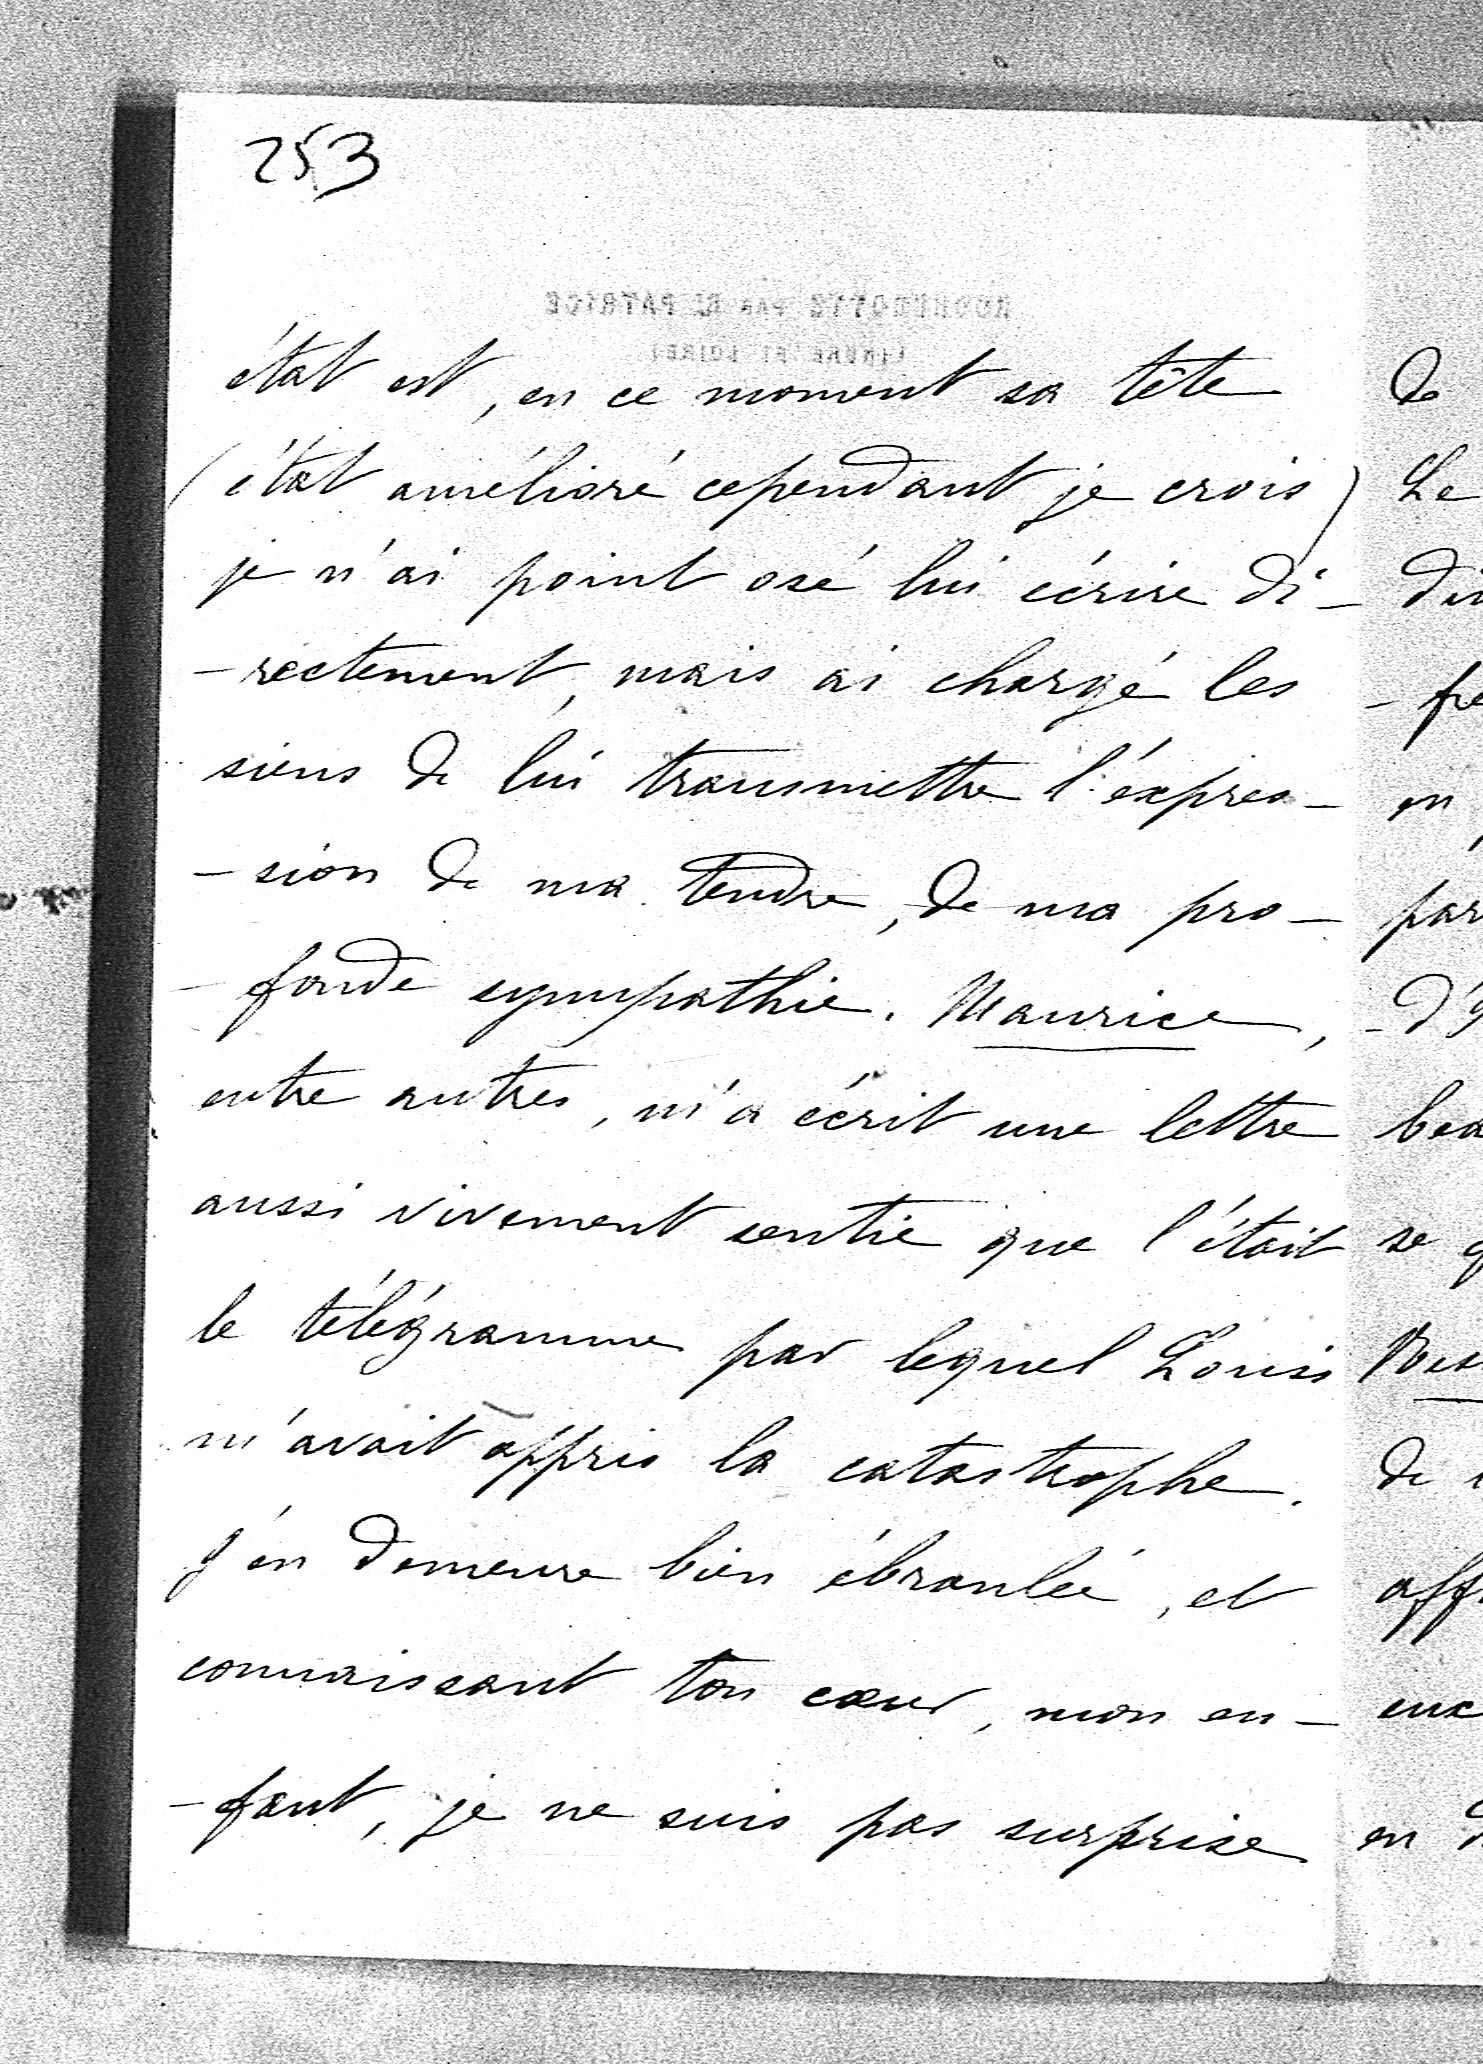 253
ROCHECOTTE PAR ST PATRICE
(INDRE ET LOIRE)
état est, en ce moment sa tête
(état amélioré cependant je crois)
je n'ai point osé lui écrire di-
-rectement, mais ai chargé les
siens de lui transmettre l'éxpres-
-sion de ma tendre, de ma pro-
-fonde sympathie. Maurice,
entre autres, m'a écrit une lettre
aussi vivement sentie que l'était
le télégramme par lequel Louis
m'avait appris la catastrophe.
J'en demeure bien ébranlée, et
connaissant ton cœur, mon en-
-fant, je ne suis pas surprise
de
Le
- fre
en
par
se
de
en